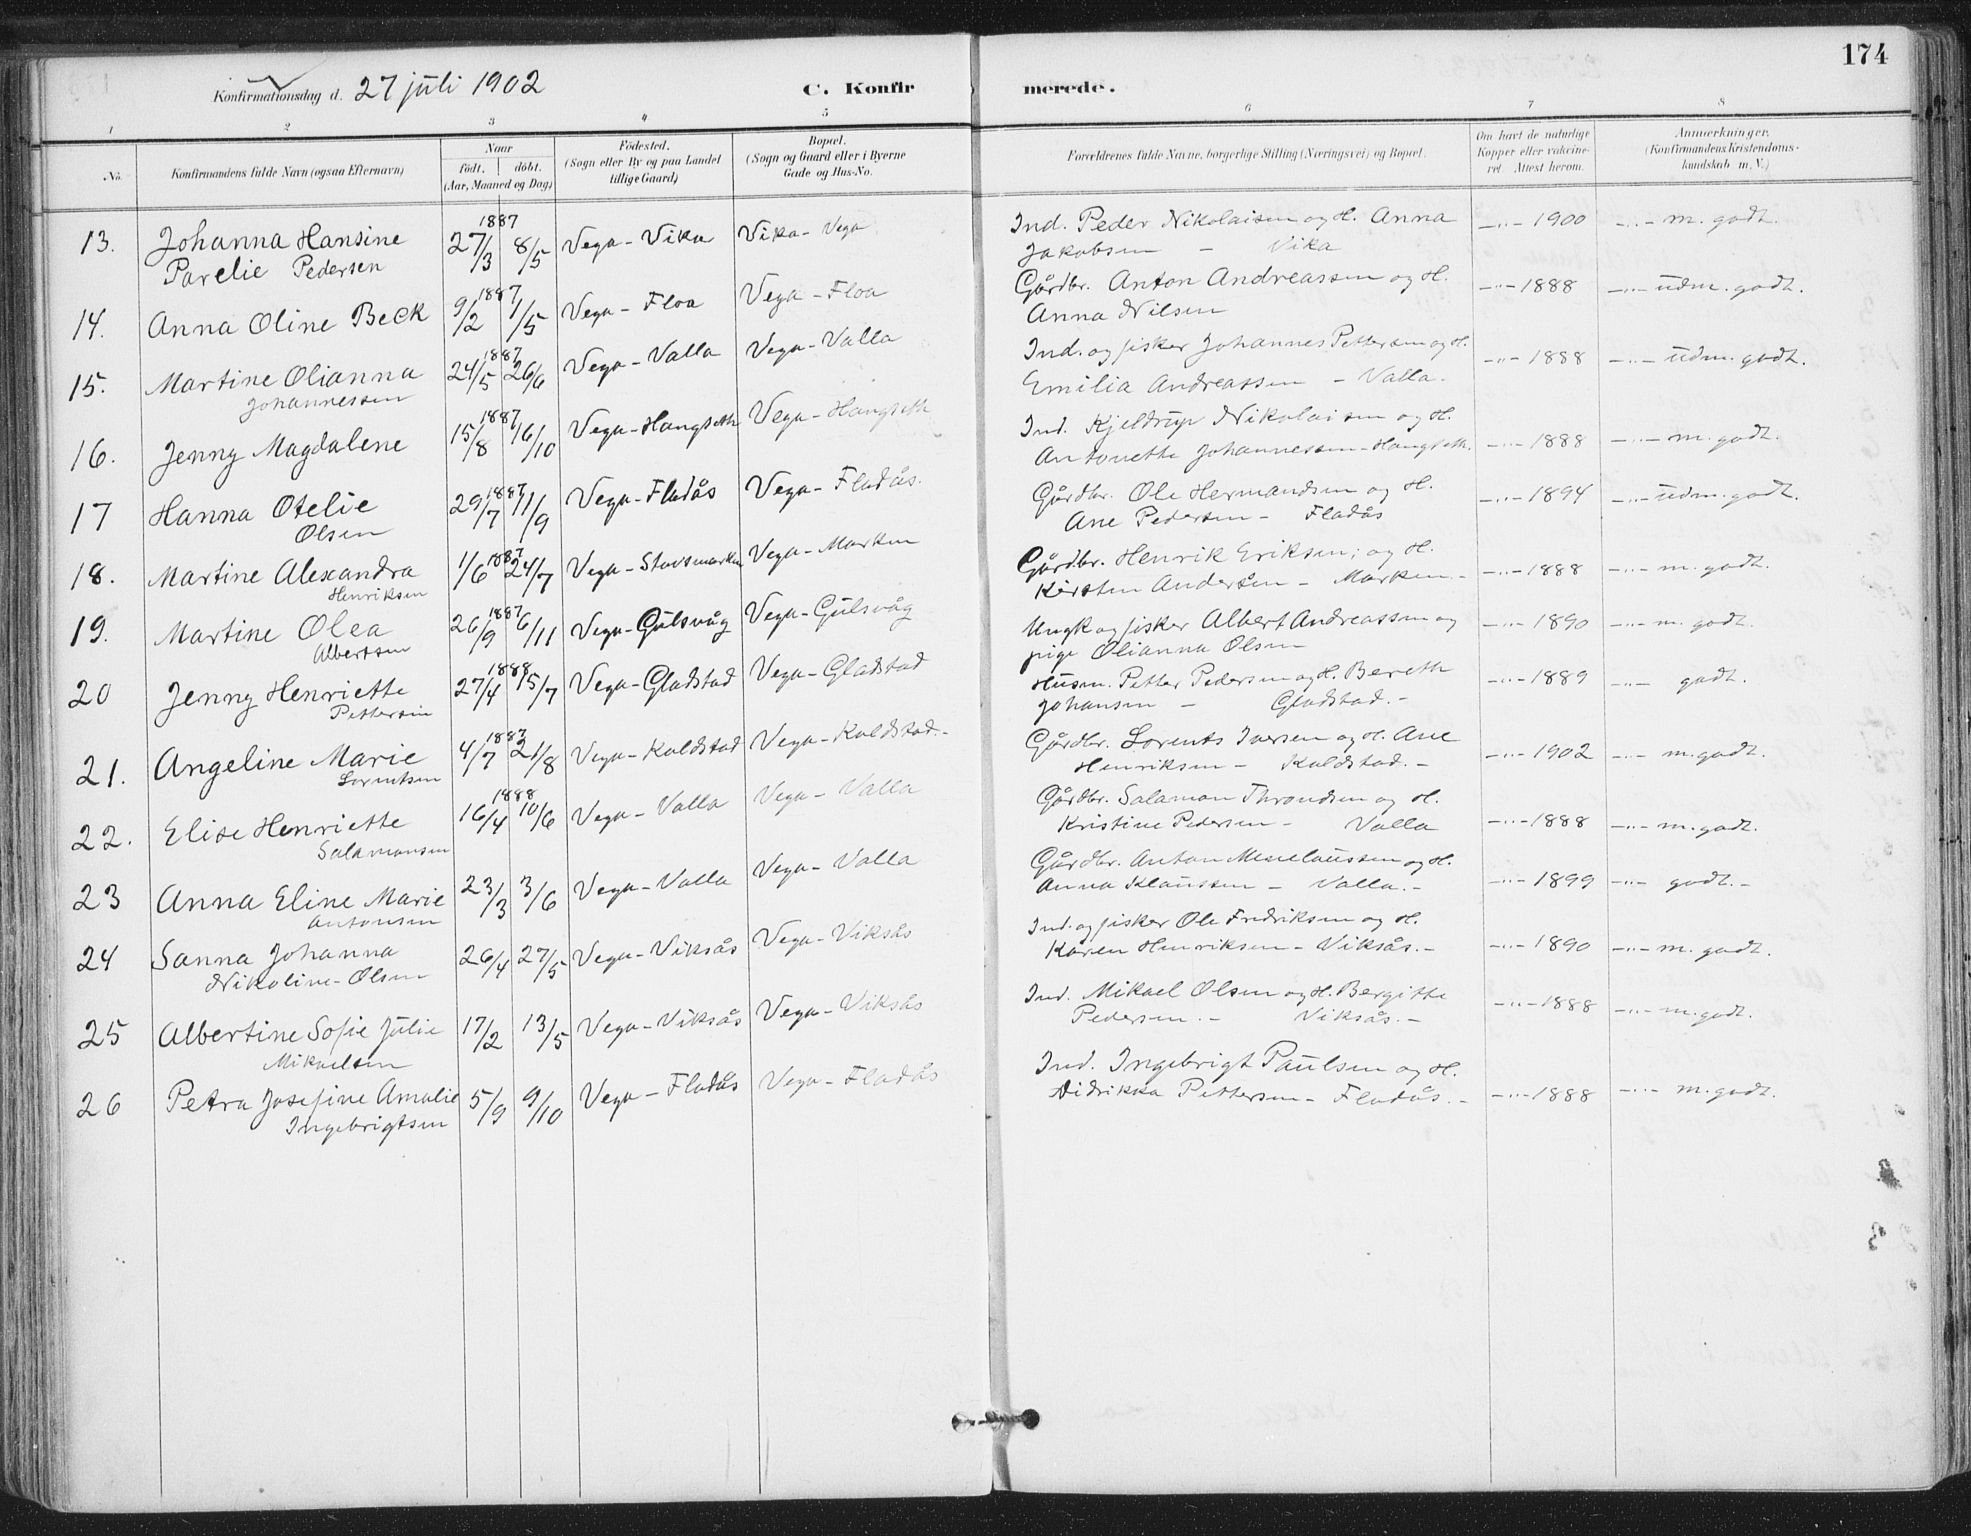 174
Konfirmationsdag d. 27 juli 1902 C. Konfir merede.
1 2 3 4 5 6 7 8
No. Konfirmandens fulde Navn (ogsaa Efternavn) Naar født. døbt. (Aar, Maaned og Dag) Fødested. (Sogn eller By og paa Landet tillige Gaard) Bopæl. (Sogn og Gaard eller i Byerne Gade og Hus-No. Forældrenes fulde Navne, borgerlige Stilling (Næringsvei) og Bopæl. Om havt de naturlige Kopper eller vaccineret Attest herom. Anmærkninger. (Konfirmandens Kristendomskundskab m. V.)
1887
13. Johanna Hansine 27/3 8/5 Vega - Vika Vika - Vega Ind. Peder Nikolaisen og H. Anna -"- 1900 -"- m. godt.
Parelie Pedersen Jakobsen - Vika
1887
14. Anna Oline Beck 9/2 1/5 Vega - Floa Vega - Floa Gårdbr. Anton Andreassen og H. -"- 1888 -"- udm. godt.
Anna Nilsen
1887
15. Martine Olianna 24/5 26/6 Vega - Valla Vega - Valla Ind. og fisker Johannes Pettersen og H. -"- 1888 -"- udm. godt.
Johannessen Emilia Andreassen - Valla.
1887
16. Jenny Magdalene 15/8 16/10 Vega - Hangseth Vega - Hangseth Ind. Kjeldrup Nikolaisen og H. -"- 1888 -"- m. godt.
Antonette Johannessen - Hangseth.
1887
17 Hanna Otelie 29/7 11/9 Vega - Fladås Vega - Fladås. Gårdbr. Ole Hermandsen og H. -"- 1894 -"- udm. godt.
Olsen Ane Pedersen - Fladås
1887
18. Martine Alexandra 1/6 24/7 Vega - Vega - Marken Gårdbr. Henrik Eriksen; og H. -"- 1888 -"- m. godt.
Henriksen Kirsten Andersen - Marken -
1887
19. Martine Olea 26/9 6/11 Vega - Gulsvåg Vega - Gulsvåg Ungk og fisker Albert Andreassen og -"- 1890 -"- m. godt.
Albertsen pige Olianna Olsen
1888
20 Jenny Henriette 27/4 15/7 Vega - Gladstad Vega - Gladstad Husm. Petter Pedersen og H. Bereth -"- 1889 -"- godt.
Pettersen Johansen - Gladstad. -
1887
21. Angeline Marie 4/7 21/8 Vega - Kaldstad Vega - Kaldstad. - Gårdbr. Lorents Iversen og H. Ane -"- 1902 -"- m. godt.
Lorentsen Henriksen - Kaldstad. -
1888
22. Elise Henriette 16/4 10/6 Vega - Valla Vega - Valla Gårdbr. Salamon Throndsen og H. -"- 1888 -"- m. godt.
Salamonsen Kristine Pedersen - Valla
23 Anna Eline Marie 23/3 3/6 Vega - Valla Vega - Valla Gårdbr. Anton Menelaussen og H. -"- 1899 -"- godt. -
Antonsen Anna Klaussen - Valla. -
24 Sanna Johanna 26/4 27/5 Vega - Viksås Vega - Viksås Ind. og fisker Ole Fredriksen og H. -"- 1890 -"- m. godt.
Nikoline - Olsen Karen Henriksen - Viksås. -
25 Albertine Sofie Julie 17/2 13/5 Vega - Viksås Vega - Viksås Ind. Mikael Olsen og H. Bergitte -"- 1888 -"- m. godt.
Mikaelsen Pedersen. - Viksås. -
26 Petra Josefine Amalie 5/9 9/10 Vega - Fladås Vega - Fladås Ind. Ingebrigt Paulsen og H. -"- 1888 -"- m. godt.
Ingebrigtsen Didrikka Pettersen - Fladås. -